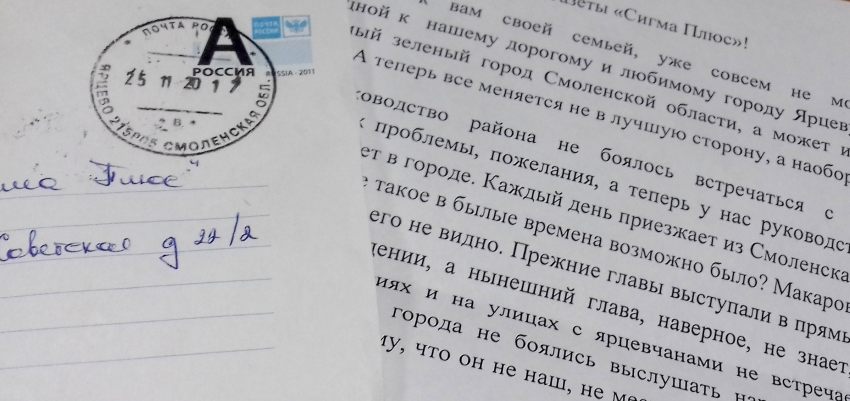 ПОЧТА РОССИИ
25 11 2017
ЯРЦЕВО 215805 СМОЛЕНСКАЯ ОБЛ.
А
РОССИЯ
RUSSIA - 2011
ПОЧТА РОССИИ
Плюс"
Советская д 22/2
газеты «Сигма Плюс»!
к вам своей семьей, уже совсем не
дной к нашему дорогому и любимому городу Ярцеву
ный зеленый город Смоленской области, а может и
А теперь все меняется не в лучшую сторону, а наобор
ководство района не боялось встречаться с
х проблемы, пожелания, а теперь у нас руководст
ет в городе. Каждый день приезжает из Смоленска
е такое в былые времена возможно было? Макаров
его не видно. Прежние главы выступали в прямы
дении, а нынешний глава, наверное, не знает,
иях и на улицах с ярцевчанами не встречае
города не боялись выслушать
му, что он не наш, не